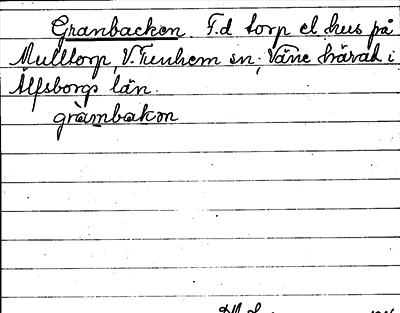 Granbacken. F.d torp el. hus på
Mulltorp, V. Tunhem sn; Väne härad i
Älfsborgs län.
gràmbakən